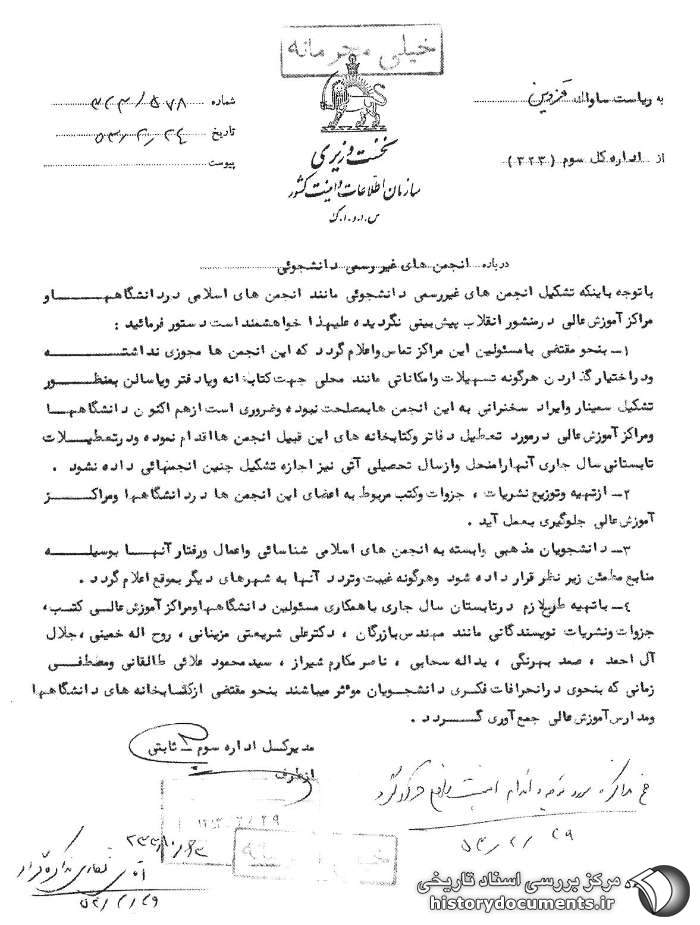 خیلی محرمانه
به ریاست ساواک قزوین
شماره ۳۲۳/۵۷۸
تاریخ ۵۳/۲/۲۴
از اداره کل سوم (۳۲۳)
پیوست
نخست وزیری
سازمان اطلاعات و امنیت کشور
س.ا.و.ا.ک
درباره انجمن های غیررسمی دانشجوئی
باتوجه باینکه تشکیل انجمن های غیررسمی دانشجوئی مانند انجمن های اسلامی دردانشگاهها و
مراکز آموزش عالی درمنشور انقلاب پیش بینی نگردیده علیهذا خواهشمند است دستور فرمائید :
۱- بنحو مقتضی با مسئولین این مراکز تماس واعلام گردد که این انجمن ها مجوزی نداشته
ودراختیار گذاردن هرگونه تسهیلات وامکاناتی مانند محلی جهت کتابخانه ویادفتر ویاسالن بمنظور
تشکیل سمینار وایراد سخنرانی به این انجمن هابمصلحت نبوده وضروری است ازهم اکنون دانشگاهها
ومراکز آموزش عالی درمورد تعطیل دفاتر وکتابخانه های این قبیل انجمن هااقدام نموده ودرتعطیلات
تابستانی سال جاری آنهارامنحل وازسال تحصیلی آتی نیز اجازه تشکیل چنین انجمنهائی داده نشود .
۲- ازتهیه وتوزیع نشریات ، جزوات وکتب مربوط به اعضای این انجمن ها دردانشگاهها ومراکز
آموزش عالی جلوگیری بعمل آید .
۳- دانشجویان مذهبی وابسته به انجمن های اسلامی شناسائی واعمال ورفتار آنها بوسیله
منابع مطمئن زیر نظر قرار داده شود وهرگونه غیبت وتردد آنها به شهرهای دیگر بموقع اعلام گردد .
۴- باتهیه طرح لازم درتابستان سال جاری باهمکاری مسئولین دانشگاهها ومراکز آموزش عالی کتب ،
جزوات ونشریات نویسندگانی مانند مهندس بازرگان ، دکترعلی شریعتی مزینانی ، روح اله خمینی ، جلال
آل احمد ، صمد بهرنگی ، یداله سحابی ، ناصر مکارم شیراز ، سید محمود علائی طالقانی ومصطفی
زمانی که بنحوی درانحرافات فکری دانشجویان موثر میباشند بنحو مقتضی ازکتابخانه های دانشگاهها
ومدارس آموزش عالی جمع آوری گردد .
مدیرکل اداره سوم ثابتی
ازطرف
۵۳/۲/۲۹
خیلی محرمانه
۵۳/۲/۲۹
مرکز بررسی اسناد تاریخی
historydocuments.ir